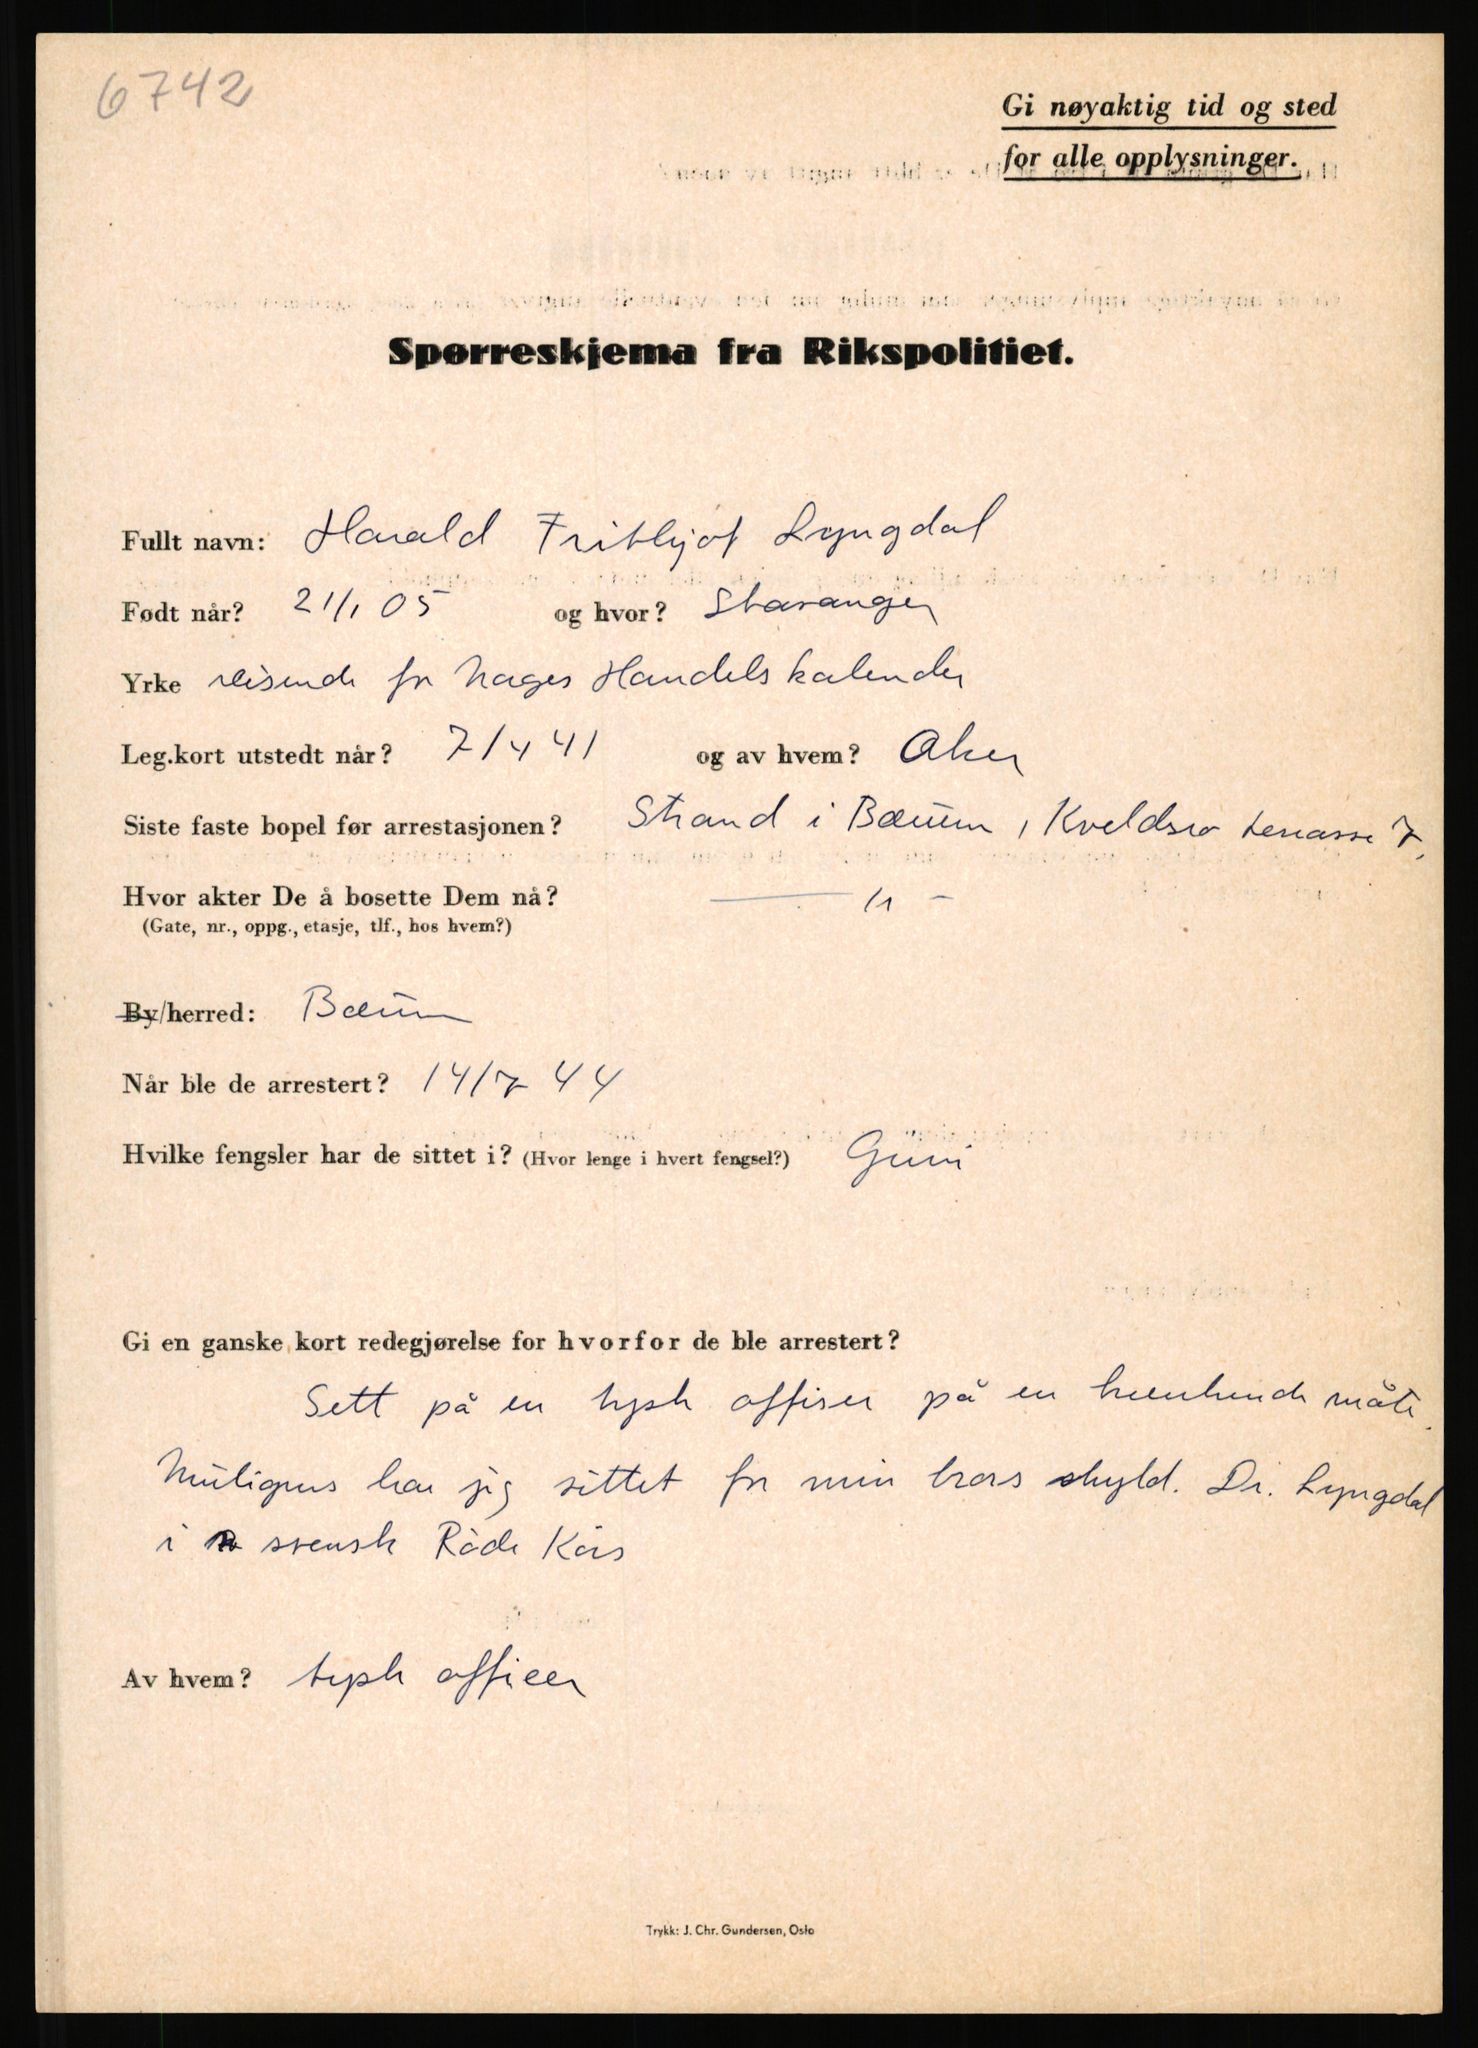 6742
Gi nøyaktig tid og sted
for alle opplysninger.
Spørreskjema fra Rikspolitiet.
Fullt navn: Harald Frithjof Lyngdal
Født når? 21/1 05 og hvor? Stavanger
Yrke reisende for Norges Handelskalender
Leg.kort utstedt når? 7/4 41 og av hvem? Aker
Siste faste bopel før arrestasjonen? Strand i Bærum, Kveldsro terrasse 7.
Hvor akter De å bosette Dem nå? — " —
(Gate, nr., oppg., etasje, tlf., hos hvem?)
By/herred: Bærum
Når ble de arrestert? 14/7 44
Hvilke fengsler har de sittet i? (Hvor lenge i hvert fengsel?) Grini
Gi en ganske kort redegjørelse for hvorfor de ble arrestert?
Sett på en tysk offiser på en måte.
Muligens har jeg sittet for min brors skyld. Dr. Lyngdal
i svensk Røde Kors
Av hvem? tysk officer
Trykk: J. Chr. Gundersen, Oslo